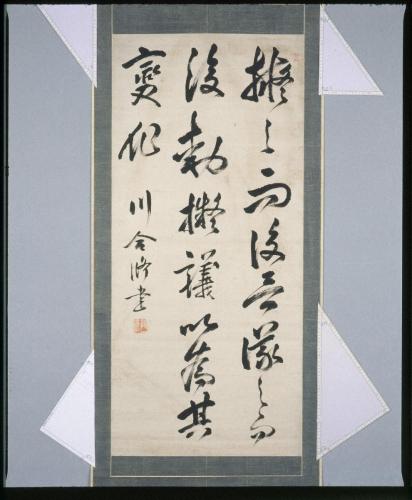 擬之而後言議之而
後動擬議以為其
變化
川合修書